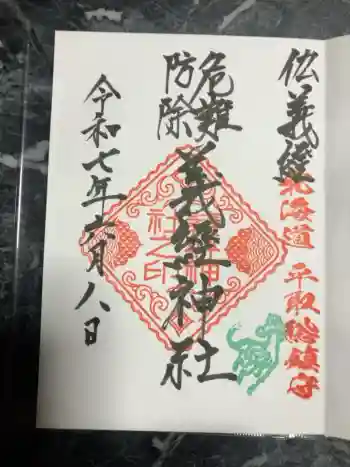 仏義経
北海道 平取総鎮守
危難
防除
義経神社
義経神
社之印
令和七年六月八日